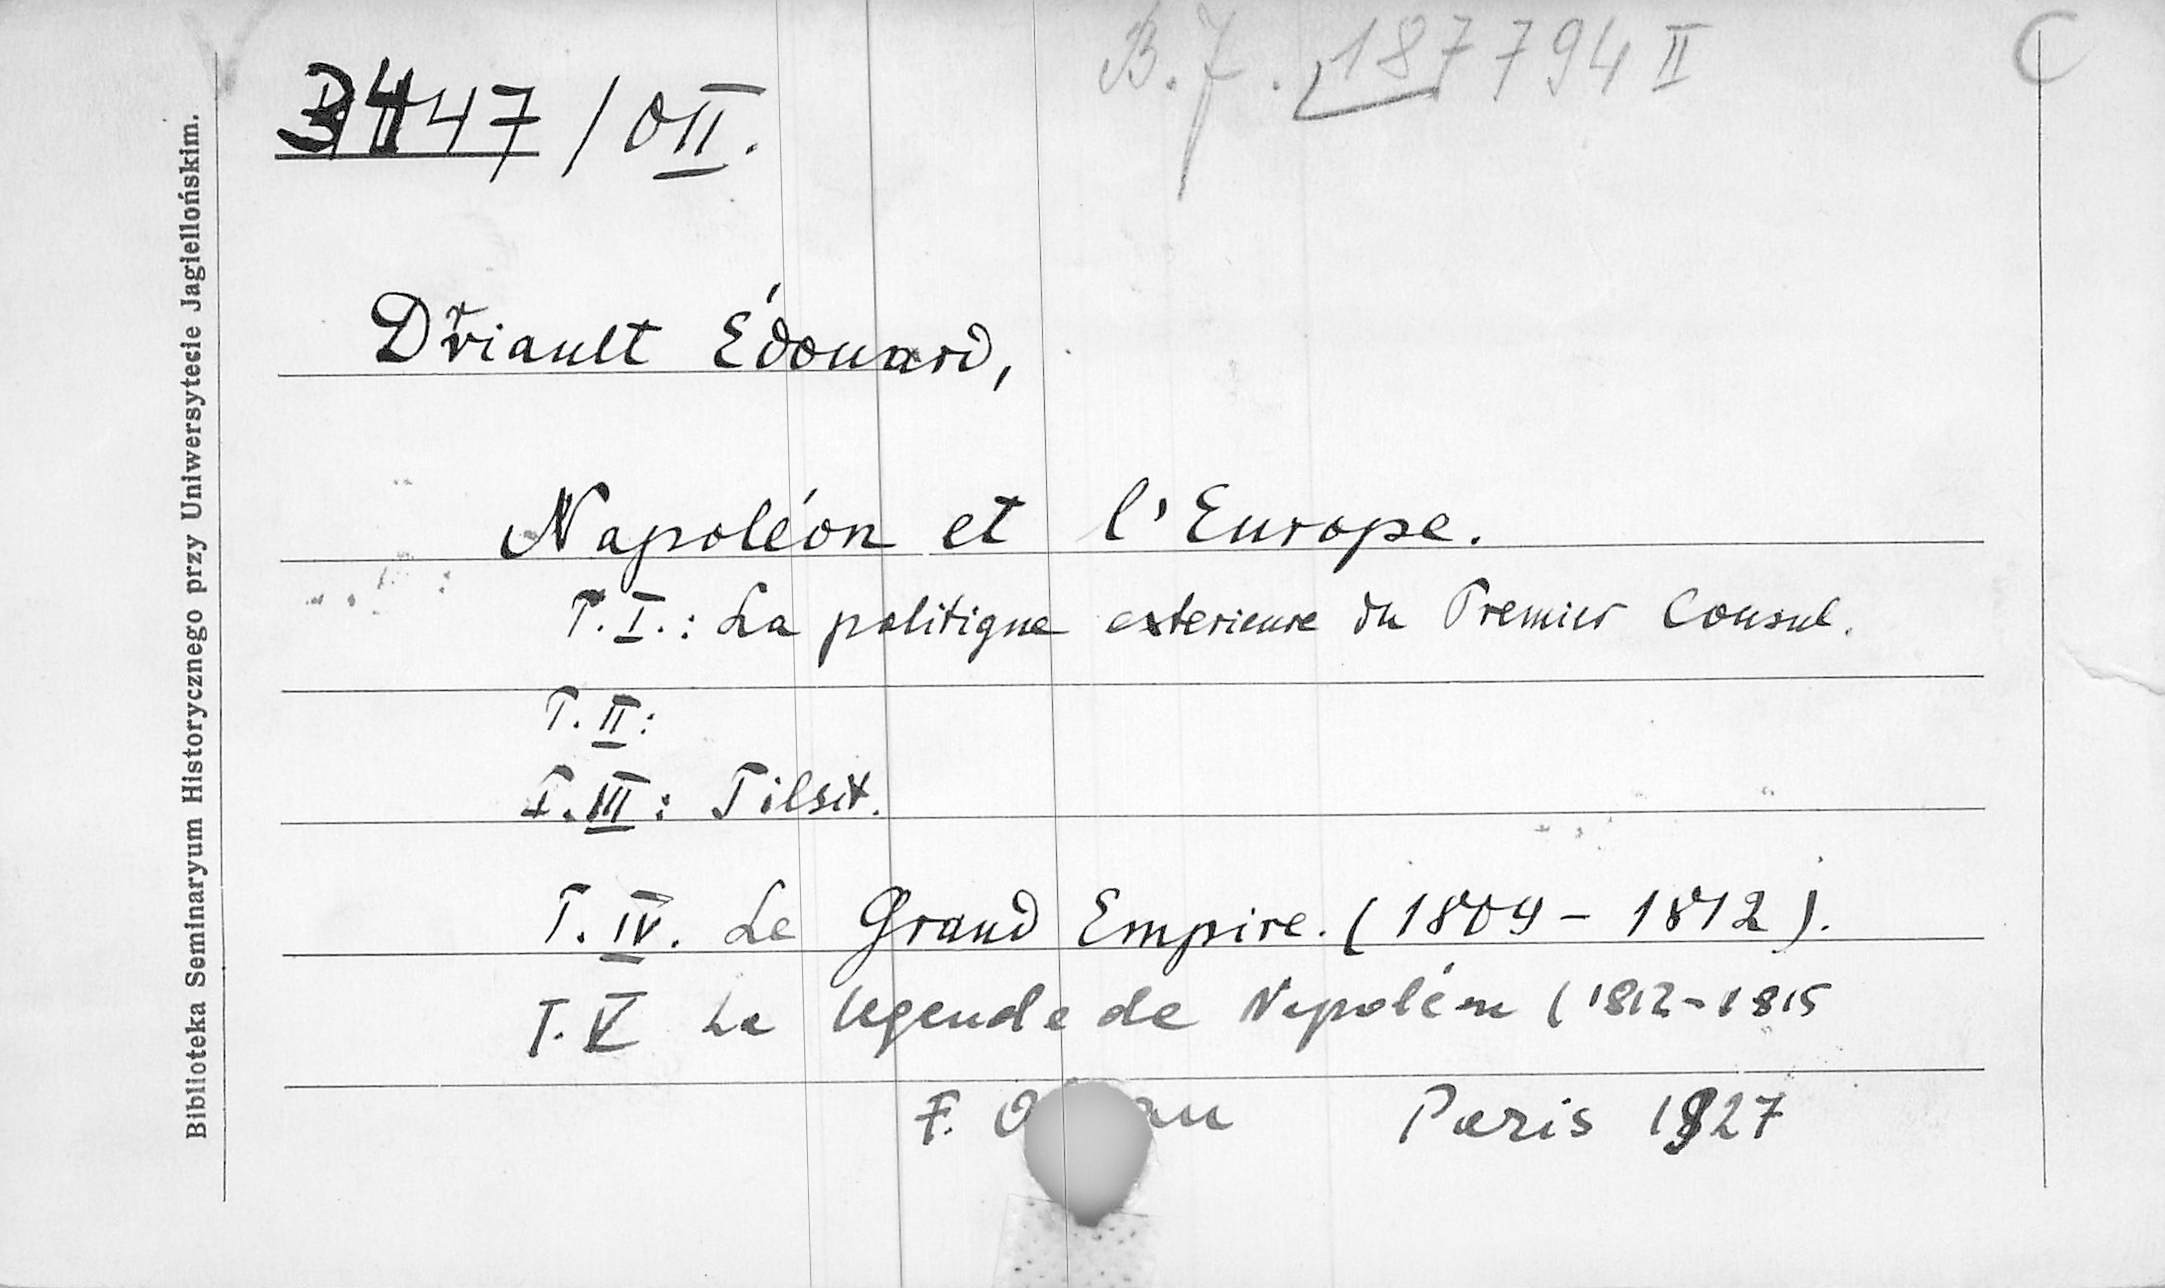 B.J. 187794 II
C
3447/OII.
Driault Édouard,
Napoléon et l'Europe.
T.I.: La politique exterieure du Premier Consul.
T.II:
T.III: Tilsit.
T.IV. Le Grand Empire. (1809-1812).
T.V La legende de Napoléon (1812-1815
F. Paris 1927
Biblioteka Seminaryum Historycznego przy Uniwersytecie Jagiellońskim.